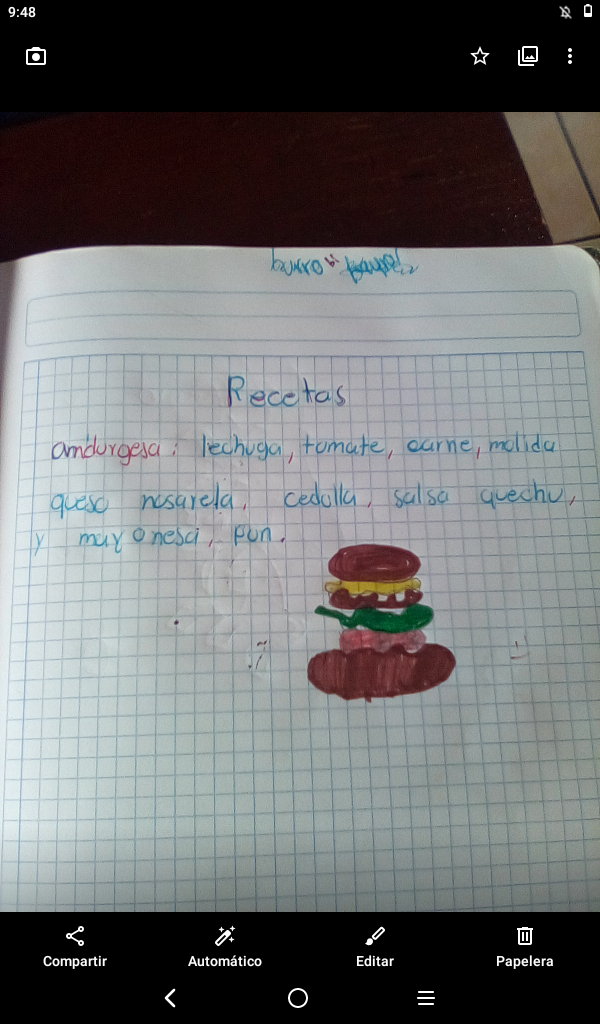 9:48
burro
Recetas
amdurgesa: lechuga, tomate, carne, molida
queso nosarela, cedolla, salsa quechu,
y mayonesa, pan.
Compartir Automático Editar Papelera